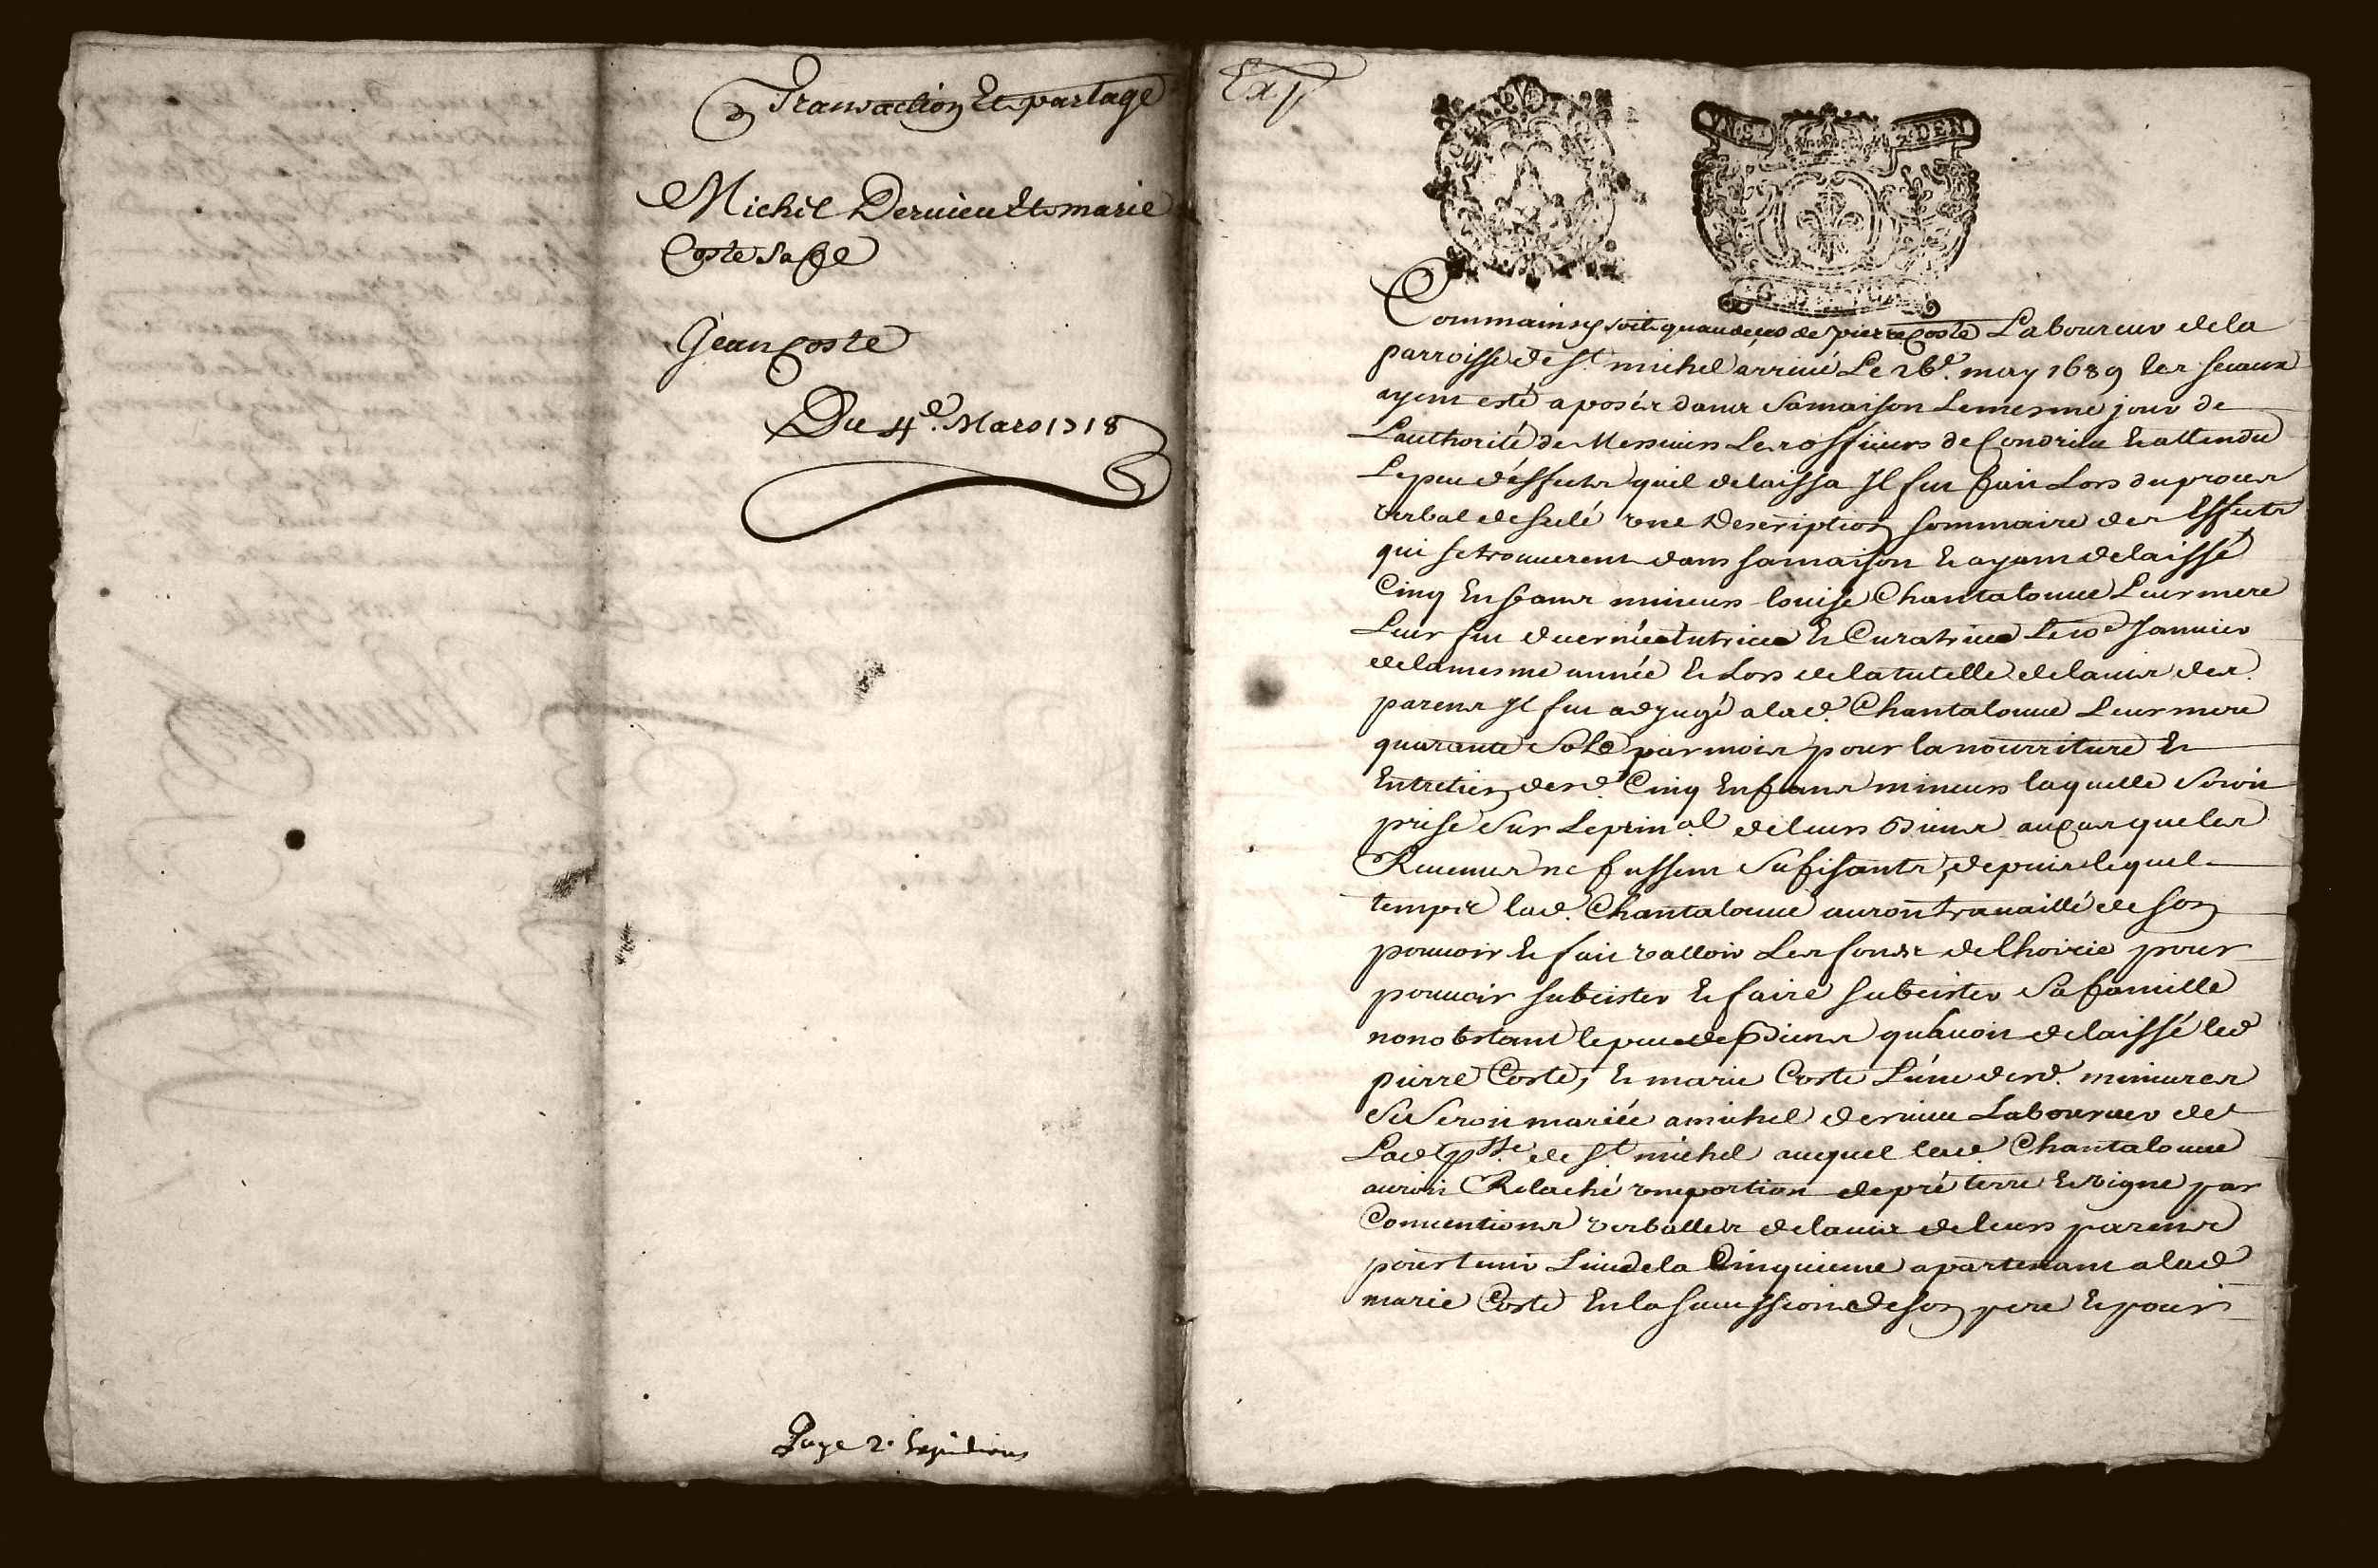 Transaction Et partage
Michel Deruieu Et marie
Coste sa fe
Jean Coste
Du 4e. Mars 1718
Page 2. Expeditions
Exp
Comme ainsy soit quau deces de pierre Coste Laboureur de la
parroisse de St. michel arriué Le 26e. may 1689 les sceaux
ayent esté aposés dans sa maison Le mesme jour de
Lauthorité de Messieurs Les officiers de Condrieu Et attendu
Le peu deffects quil delaissa Il fut fait Lors du proces
verbal de scelé vne Description sommaire des Effects
qui se trouuerent dans sa maison Et ayant delaissé
Cinq Enfants mineurs louise Chantalouue Leur mere
Leur fut decernée tutrice Et Curatrice Le Januier
de la mesme année Et Lors de la tutelle de lauis des
parens Il fut adjugé a lad. Chantalouue Leur mere
quarante Sols par mois pour la nourriture Et
Entretien desd. Cinq Enfans mineurs laquelle Seroit
prise Sur Le prinal. de leurs Biens au cas que les
Reuenus ne fussent Sufisants, depuis lequel
temps lad. Chantalouue auroit trauaillé de son
pouuoir Et fait valloir Les fonds de lhoirie pour
pouuoir subcister Et faire subcister Sa famille
nonobstant le peu de Biens quauoit delaissé led
pierre Coste, Et marie Coste Lune desd. mineures
Se Seroit mariée a michel deruieu Laboureur de
Lad. psse. de St michel auquel lad. Chantalouue
auroit Relaché vne portion de pré terre Et vigne par
Conuentions verballes de lauis de leurs parens
pour tenir Lieu de la Cinquieme apartenant a lad
marie Coste En la succession de son pere Et pour